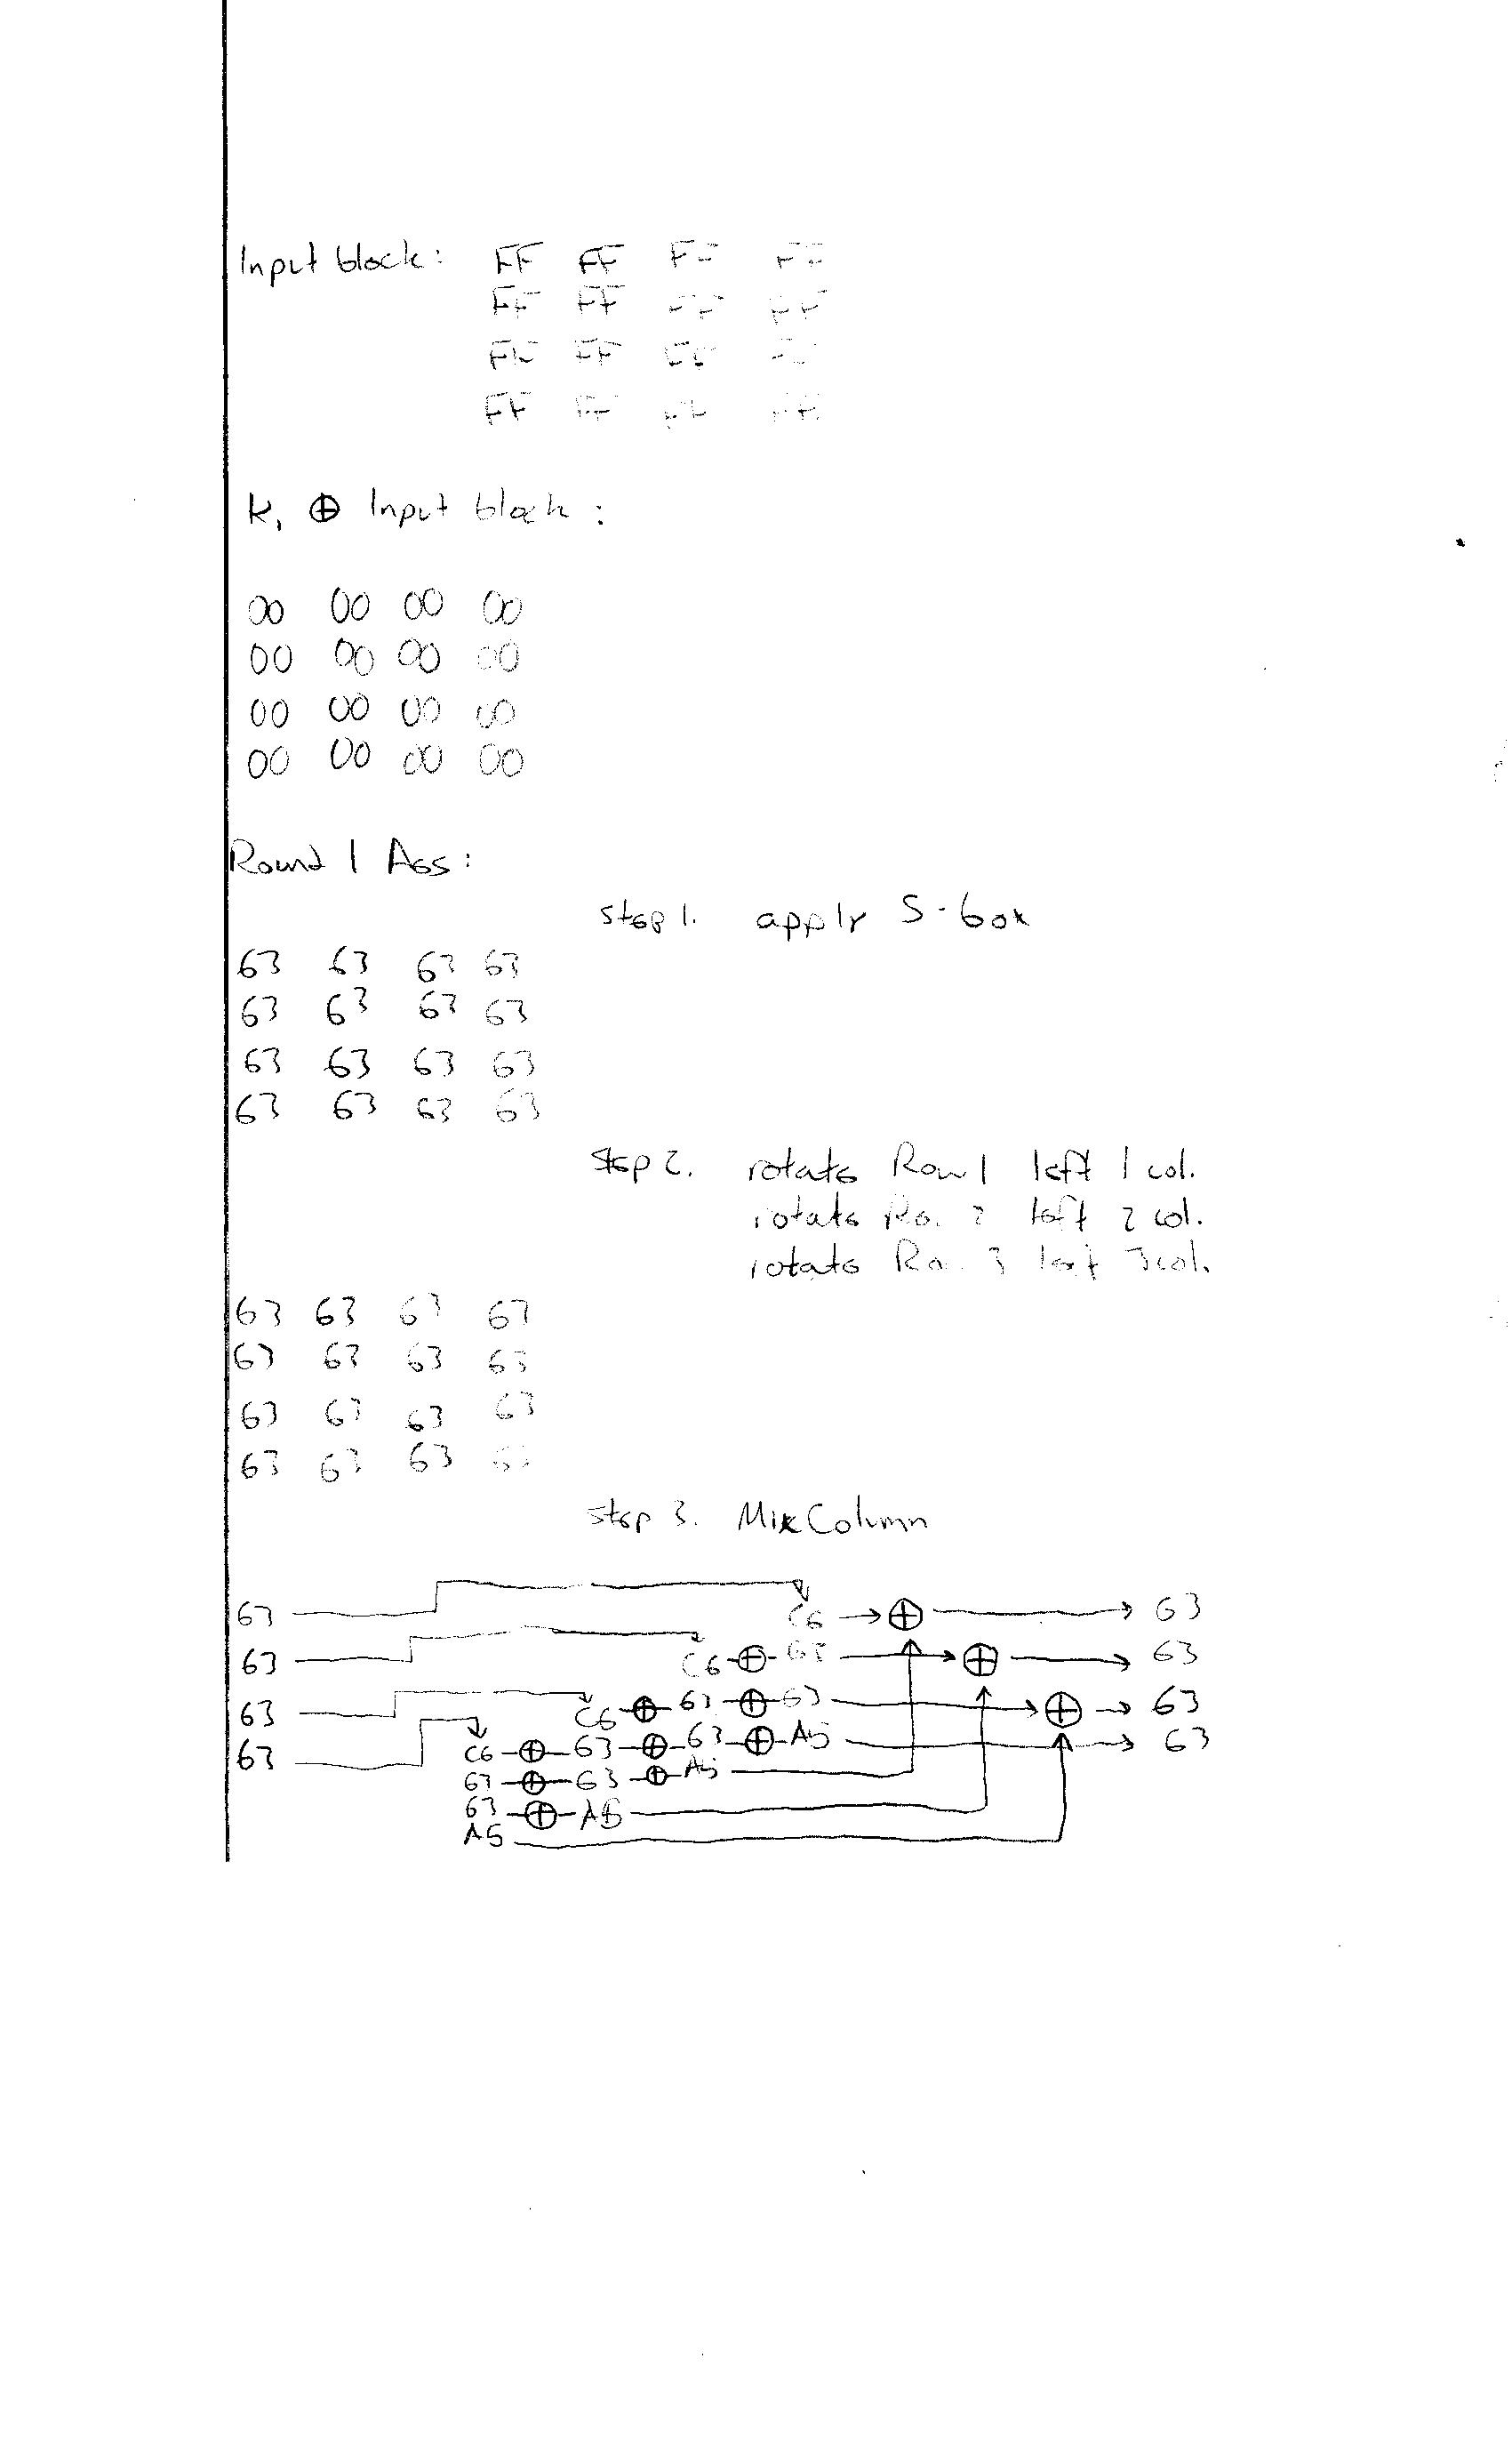 Input block: FF FF FF FF
FF FF FF FF
FF FF FF FF
FF FF FF FF
K, ⊕ Input block :
00 00 00 00
00 00 00 00
00 00 00 00
00 00 00 00
Round 1 AES :
step 1. apply S-box
63 63 63 63
63 63 63 63
63 63 63 63
63 63 63 63
step 2. rotate Row 1 left 1 col.
rotate Row 2 left 2 col.
rotate Row 3 left 3 col.
63 63 63 63
63 63 63 63
63 63 63 63
63 63 63 63
step 3. MixColumn
63 C6 → ⊕ → 63
63 C6 ⊕ 63 → ⊕ → 63
63 C6 ⊕ 63 ⊕ 63 → ⊕ → 63
63 C6 ⊕ 63 ⊕ 63 ⊕ A5 → 63
63 ⊕ 63 ⊕ A5
63 ⊕ A5
A5